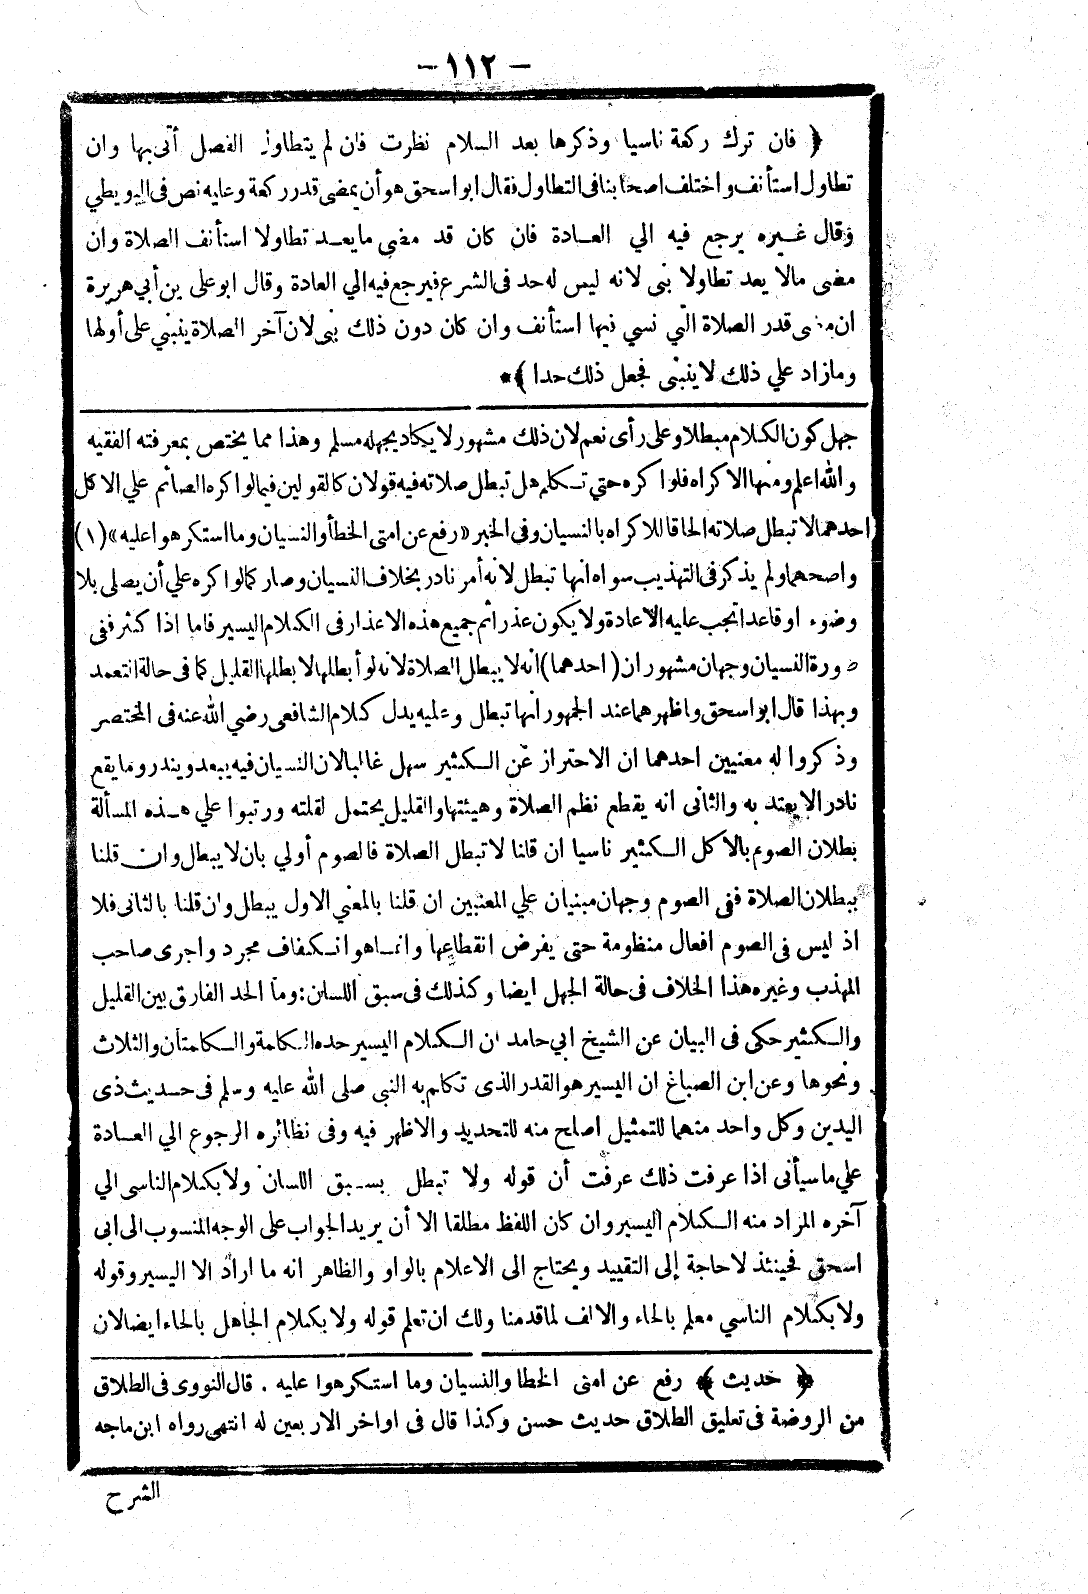 - ١١٢ -
﴿ فان ترك ركعة ناسيا وذكرها بعد السلام نظرت فان لم يتطاول الفصل أتى بها وان
تطاول استأنف واختلف اصحابنا فى التطاول فقال ابو اسحق هو أن يمضى قدر ركعة وعليه نص فى البويطي
وقال غيره يرجع فيه الي العادة فان كان قد مضى ما يعد تطاولا استأنف الصلاة وان
مضى مالا يعد تطاولا بنى لانه ليس له حد فى الشرع فيرجع فيه الي العادة وقال ابو على بن أبي هريرة
ان مضى قدر الصلاة التي نسي فيها استأنف وان كان دون ذلك بنى لان آخر الصلاة ينبني على أولها
وما زاد علي ذلك لا ينبنى فجعل ذلك حدا ﴾*
جهل كون الكلام مبطلا وعلى رأى نعم لان ذلك مشهور لا يكاد يجهله مسلم وهذا مما يختص بمعرفته الفقيه
والله اعلم ومنها الاكراه فلو اكره حتي تكلم هل تبطل صلاته فيه قولان كالقولين فيما لو اكره الصائم علي الاكل
احدهما لا تبطل صلاته الحاقا للاكراه بالنسيان وفى الخبر «رفع عن امتى الخطأ والنسيان وما استكرهوا عليه» (١)
واصحهما ولم يذكر فى التهذيب سواه انها تبطل لانه أمر نادر بخلاف النسيان وصار كما لو اكره علي أن يصلى بلا
وضوء او قاعدا تجب عليه الاعادة ولا يكون عذر اثم جميع هذه الاعذار فى الكلام اليسير فاما اذا كثر ففى
صورة النسيان وجهان مشهوران ( احدهما ) انه لا يبطل الصلاة لانه لو أبطلها لابطلها القليل كما فى حالة التعمد
وبهذا قال ابو اسحق واظهرهما عند الجمهور انها تبطل وعليه يدل كلام الشافعى رضي الله عنه فى المختصر
وذكروا له معنيين احدهما ان الاحتراز عن الكثير سهل غالبا لان النسيان فيه يبعد ويندر وما يقع
نادرا لا يعتد به والثانى انه يقطع نظم الصلاة وهيئتها والقليل يحتمل لقلته ورتبوا علي هذه المسألة
بطلان الصوم بالاكل الكثير ناسيا ان قلنا لا تبطل الصلاة فالصوم أولي بان لا يبطل وان قلنا
ببطلان الصلاة ففى الصوم وجهان مبنيان علي المعنيين ان قلنا بالمعني الاول يبطل وان قلنا بالثانى فلا
اذ ليس فى الصوم افعال منظومة حتى يفرض انقطاعها وانما هو انكفاف مجرد واجرى صاحب
المهذب وغيره هذا الخلاف فى حالة الجهل ايضا وكذلك فى سبق اللسان : وما الحد الفارق بين القليل
والكثير حكى فى البيان عن الشيخ ابي حامد ان الكلام اليسير حده الكلمة والكلمتان والثلاث
ونحوها وعن ابن الصباغ ان اليسير هو القدر الذى تكلم به النبي صلى الله عليه وسلم فى حديث ذى
اليدين وكل واحد منهما للتمثيل اصلح منه للتحديد والاظهر فيه وفى نظائره الرجوع الي العادة
علي ما سيأتى اذا عرفت ذلك عرفت أن قوله ولا تبطل بسبق اللسان ولا بكلام الناسى الي
آخره المراد منه الكلام اليسير وان كان اللفظ مطلقا الا أن يريد الجواب على الوجه المنسوب الى ابى
اسحق فحينئذ لا حاجة إلى التقييد ويحتاج الى الاعلام بالواو والظاهر انه ما اراد الا اليسير وقوله
ولا بكلام الناسي معلم بالحاء والالف لما قدمنا ولك ان تعلم قوله ولا بكلام الجاهل بالحاء ايضا لان
﴿ حديث ﴾ رفع عن امتى الخطا والنسيان وما استكرهوا عليه . قال النووى فى الطلاق
من الروضة فى تعليق الطلاق حديث حسن وكذا قال فى اواخر الاربعين له انتهى رواه ابن ماجه
الشرح